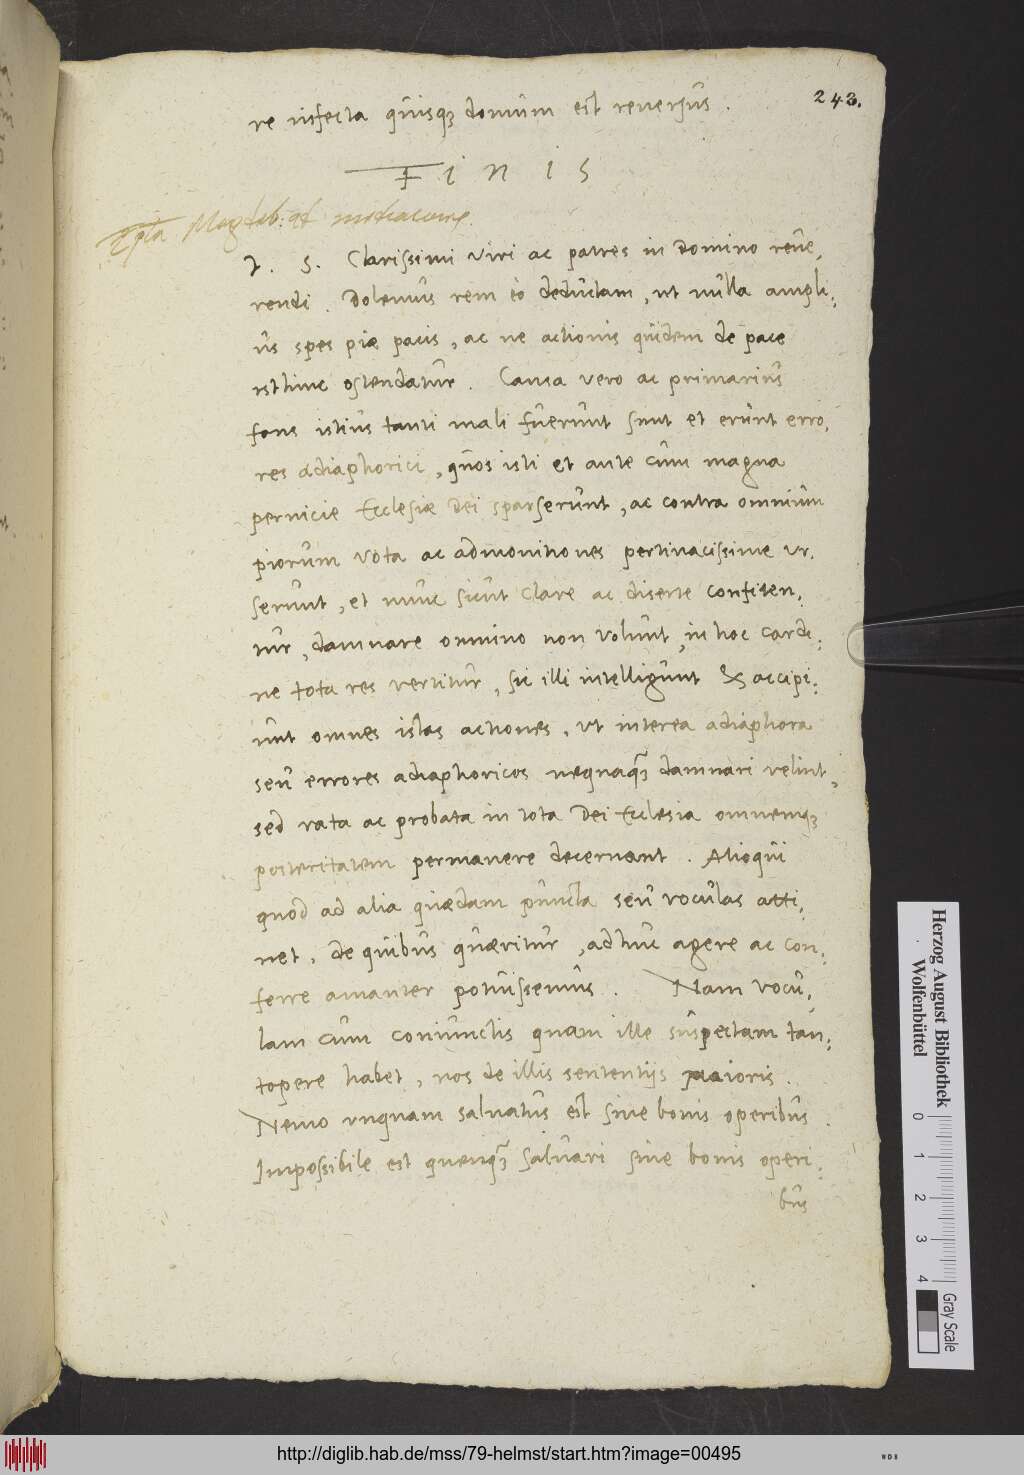 243.
re infecta quisq; domum est reversus.
Finis
Magdeb:
J. S. Clarissimi viri ac patres in Domino reve,
rendi. Dolemus rem eò deductam, ut nulla ampli,
us spes piæ pacis, ac ne actionis quidem de pace
isthinc ostendatur. Causa vero ac primarius
fons istius tanti mali fuerunt sunt et erunt erro,
res adiaphorici, quos isti et ante cum magna
pernicie Ecclesiæ Dei sparserunt, ac contra omnium
piorum vota ac admonitiones pertinacissime ur,
serunt, et nunc sicut clare ac diserte confiten,
tur, damnare omnino non volunt, in hoc cardi,
ne tota res vertitur, sic illi intelligunt & accipi,
unt omnes istas actiones, ut interea adiaphora
seu errores adiaphoricos nequaq; damnari velint,
sed rata ac probata in tota Dei Ecclesia omnemq;
posteritatem permanere decernant. Alioqui
quod ad alia quædam puncta seu voculas atti,
net, de quibus quæritur, adhuc agere ac con,
ferre amanter potuissemus. Nam vocu,
lam cum coniunctis quam ille suspectam tan,
topere habet, nos de illis sententijs Maioris.
Nemo unquam salvatus est sine bonis operibus.
Impossibile est quenq; salvari sine bonis operi,
bus
Herzog August Bibliothek
Wolfenbüttel
0 1 2 3 4
Gray Scale
http://diglib.hab.de/mss/79-helmst/start.htm?image=00495